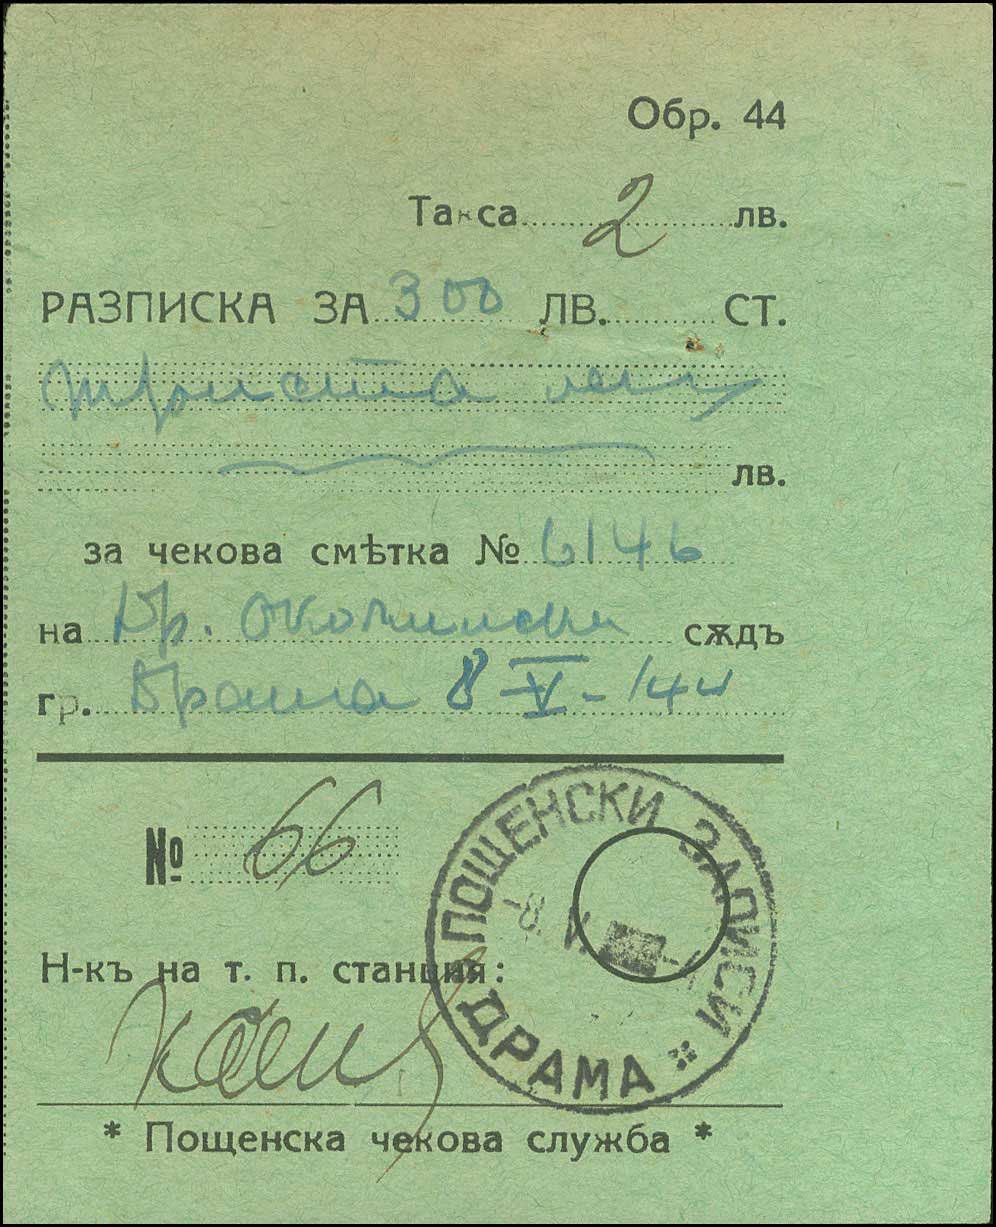 Обр. 44
Такса 2 лв.
РАЗПИСКА ЗА 300 ЛВ. СТ.
триста лева
лв.
за чекова смѣтка № 6146
на Др. околийски сѫдъ
гр. Драма 8-V-144
№ 66
ПОЩЕНСКИ ЗАПИСИ
-8. V
ДРАМА
Н-къ на т. п. станция:
* Пощенска чекова служба *